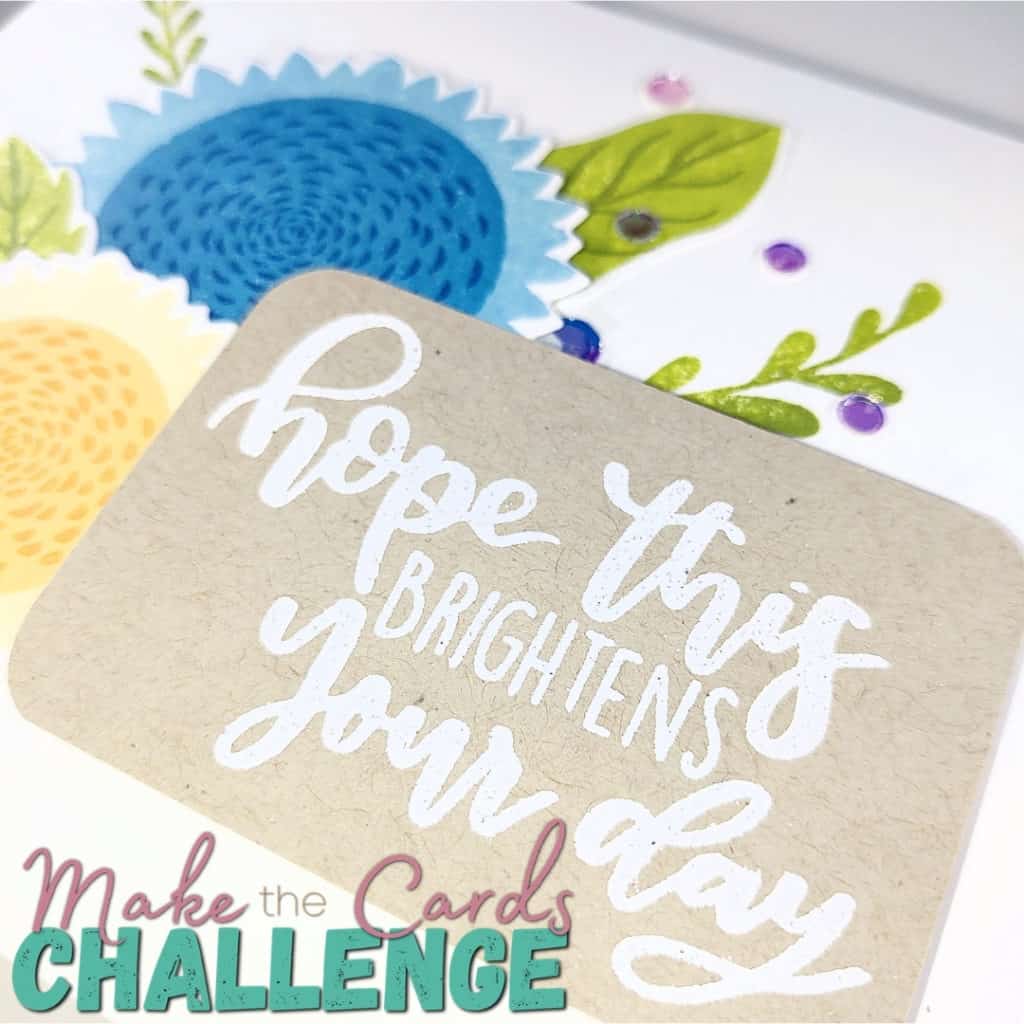 hope this
BRIGHTENS
your day
Make the Cards
CHALLENGE